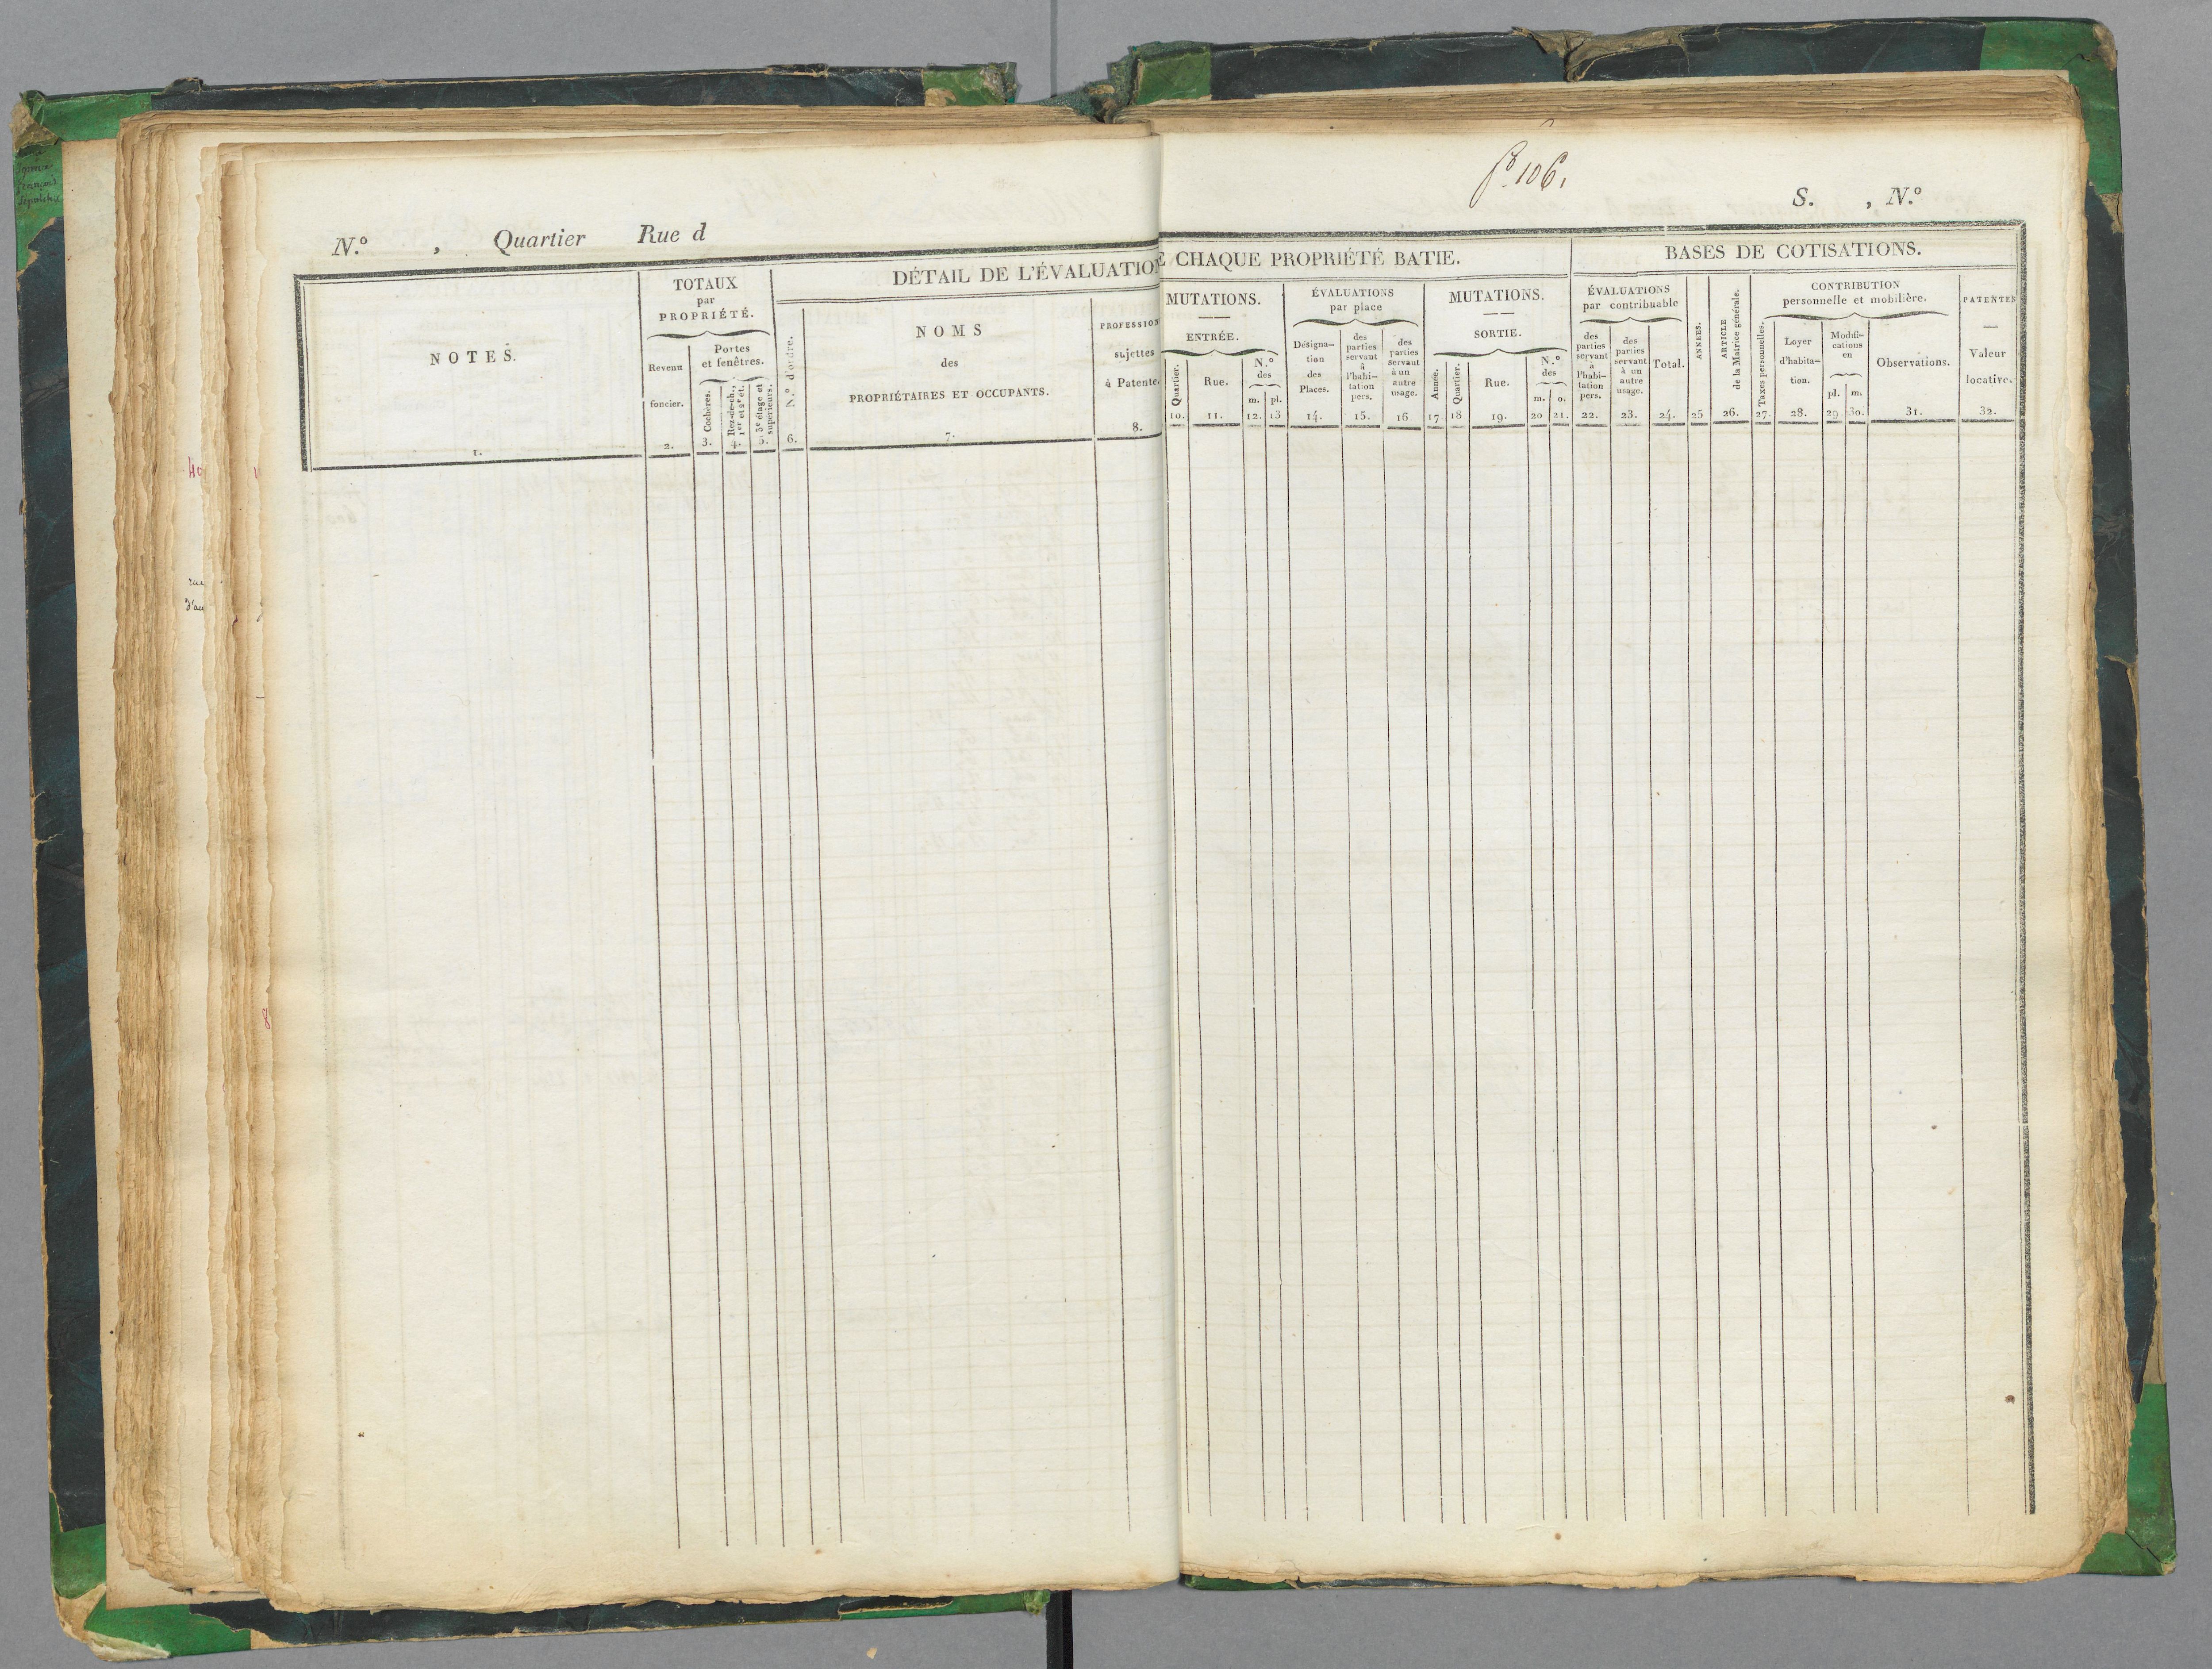 fo. 106.
N.º , Quartier Rue d
S. , N.º
NOTES.
1.
TOTAUX
par
PROPRIÉTÉ.
Revenu
foncier.
2.
Portes
et fenêtres.
Cochères.
3.
Rez-de-ch.,
1er et 2e ét.
4.
3e étage et
supérieurs.
5.
DÉTAIL DE L'ÉVALUATION
E CHAQUE PROPRIÉTÉ BATIE.
N.º d'ordre.
6.
NOMS
des
PROPRIÉTAIRES ET OCCUPANTS.
7.
PROFESSION
sujettes
à Patente.
8.
MUTATIONS.
ENTRÉE.
Quartier.
10.
Rue.
11.
N.º
des
m. pl.
12. 13
ÉVALUATIONS
par place
Désigna-
tion
des
Places.
14.
des
parties
servant
à
l'habi-
tation
pers.
15.
des
parties
servant
à un
autre
usage.
16
MUTATIONS.
SORTIE.
Année.
17
Quartier.
18
Rue.
19.
N.º
des
m. o.
20 21.
BASES DE COTISATIONS.
ÉVALUATIONS
par contribuable
des
parties
servant
à
l'habi-
tation
pers.
22.
des
parties
servant
à un
autre
usage.
23.
Total.
24.
ANNÉES.
25
ARTICLE
de la Matrice générale.
26.
CONTRIBUTION
personnelle et mobilière.
Taxes personnelles.
27.
Loyer
d'habita-
tion.
28.
Modifi-
cations
en
pl. m.
29 30.
Observations.
31.
PATENTES
Valeur
locative.
32.